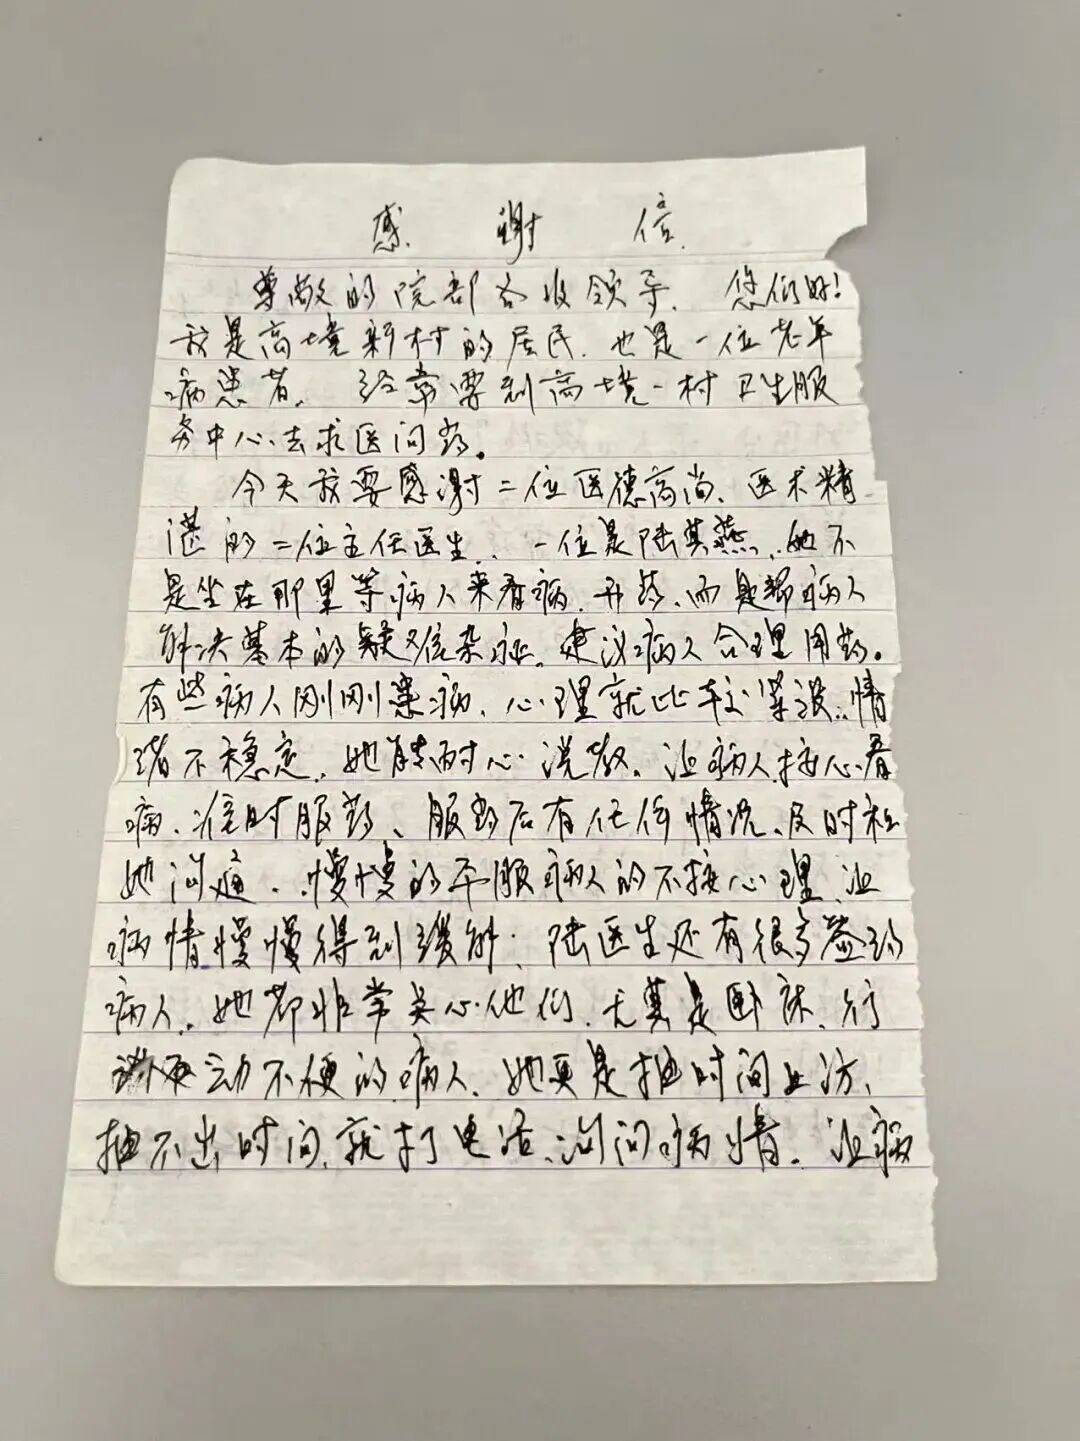 感谢信
尊敬的院部各收领导、您们好!
我是高境新村的居民、也是一位老年
病患者、经常要到高境一村卫生服
务中心去求医问药。
今天我要感谢二位医德高尚、医术精
湛的二位主任医生、一位是陆其燕、她不
是坐在那里等病人来看病、开药、而是帮病人
解决基本的疑难杂症、建议病人合理用药。
有些病人刚刚患病、心理就比较紧张、情
绪不稳定、她能耐心说教、让病人按心看
病、准时服药、服药后有任何情况、及时和
她沟通、慢慢的平服病人的不按心理、让
病情慢慢得到缓解、陆医生还有很多签约
病人、她都非常关心他们、尤其是卧床、行
动不便的病人、她更是抽时间上访、
抽不出时间、就打电话、询问病情、让病